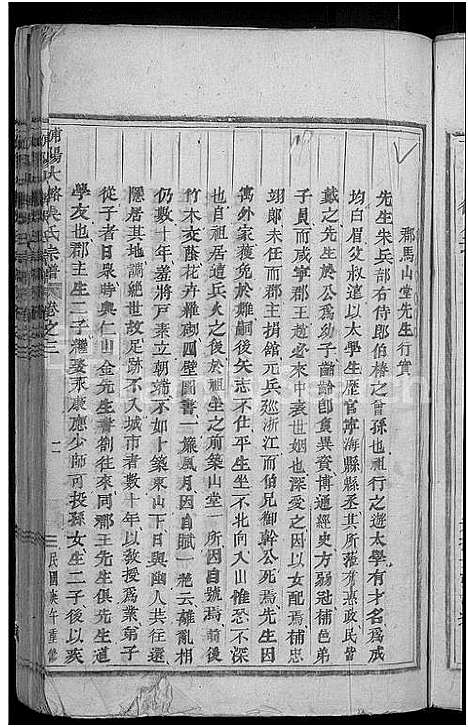 郡馬山堂先生行實
先生朱兵部右侍郎伯椿之曾孫也祖行之遊太學有才名爲成
均白眉父叔遠以太學生歷官寧海縣縣丞其所蒞有惠政民皆
戴之先生於公爲幼子齠齡卽負異資博通經史方弱冠補邑弟
子員而咸寧郡王趙必來中表世姻也深愛之因以女配焉補忠
翊郎未任而郡主捐館元兵廵浙江而伯兄御幹公死焉先生因
寓外家獲免於難嗣後矢志不仕平生坐不北向入山惟恐不深
也自祖居遭兵火之後於祖坐之前築山堂一所因自號焉前後
竹木交蔭花卉羅砌四壁圖書一簾風月因自賦一絶云離亂相
仍數十年羞將戸乘立朝端不如卜築東山下日與幽人共往還
隱居其地調絶世故足跡不入城市者數十年以敎授爲業弟子
從子者日衆時與仁山金先生書劄往來同郡王先生俱先生道
學友也郡主生二子繼娶永康應少師可投孫女生二子後以疾
浦陽大嶅吳氏宗譜
卷之三
二
民國庚午重修